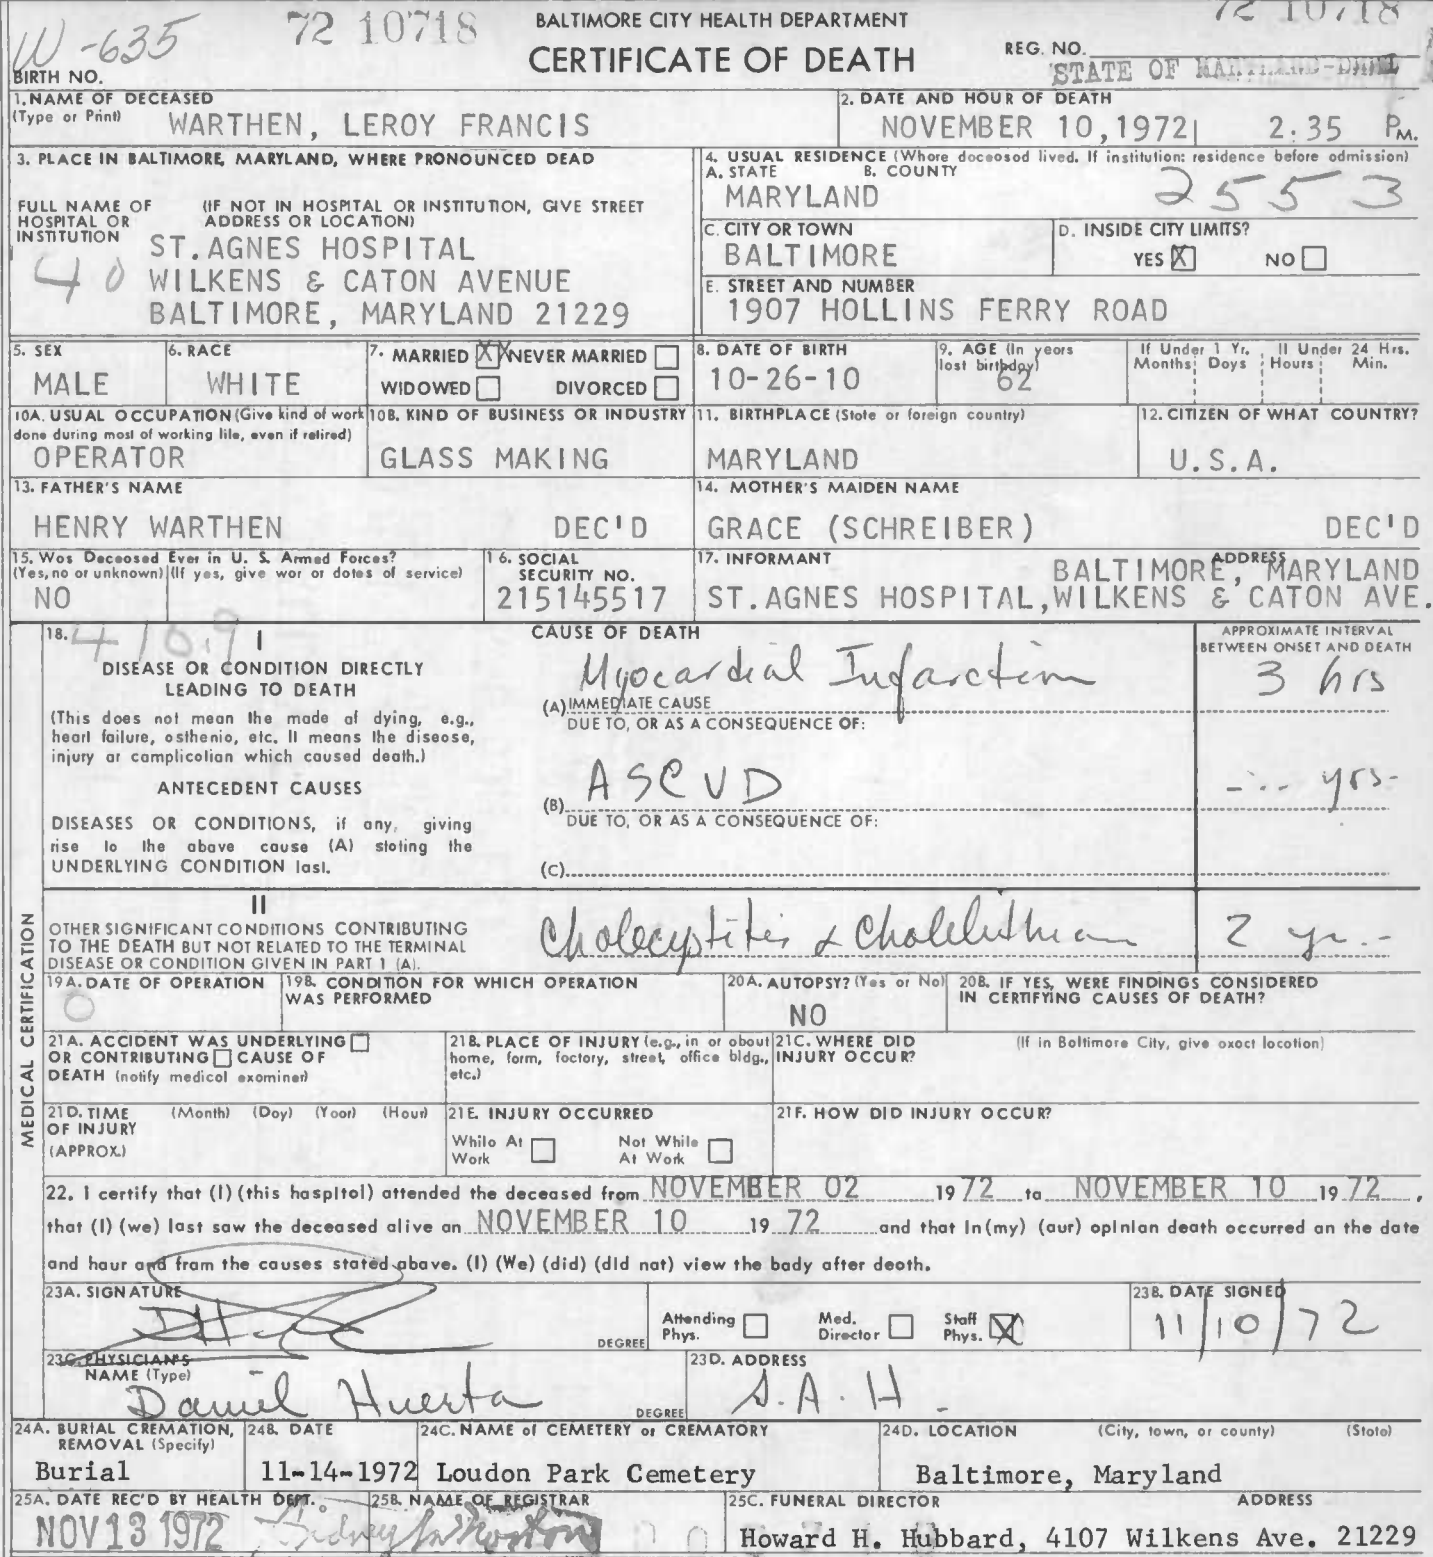 W-635
72 10718
BALTIMORE CITY HEALTH DEPARTMENT
CERTIFICATE OF DEATH
72 10718
REG. NO.
STATE OF MARYLAND-DHMH
BIRTH NO.
1. NAME OF DECEASED
(Type or Print)
WARTHEN, LEROY FRANCIS
2. DATE AND HOUR OF DEATH
NOVEMBER 10,1972 2:35 P M.
3. PLACE IN BALTIMORE, MARYLAND, WHERE PRONOUNCED DEAD
FULL NAME OF HOSPITAL OR INSTITUTION
(IF NOT IN HOSPITAL OR INSTITUTION, GIVE STREET ADDRESS OR LOCATION)
40
ST.AGNES HOSPITAL
WILKENS & CATON AVENUE
BALTIMORE, MARYLAND 21229
4. USUAL RESIDENCE (Where deceased lived. If institution: residence before admission)
A. STATE B. COUNTY
MARYLAND 2553
C. CITY OR TOWN
BALTIMORE
D. INSIDE CITY LIMITS?
YES X NO
E. STREET AND NUMBER
1907 HOLLINS FERRY ROAD
5. SEX
MALE
6. RACE
WHITE
7. MARRIED XX NEVER MARRIED
WIDOWED DIVORCED
8. DATE OF BIRTH
10-26-10
9. AGE (In years last birthday)
62
If Under 1 Yr. If Under 24 Hrs.
Months Days Hours Min.
10A. USUAL OCCUPATION (Give kind of work done during most of working life, even if retired)
OPERATOR
10B. KIND OF BUSINESS OR INDUSTRY
GLASS MAKING
11. BIRTHPLACE (State or foreign country)
MARYLAND
12. CITIZEN OF WHAT COUNTRY?
U.S.A.
13. FATHER'S NAME
HENRY WARTHEN DEC'D
14. MOTHER'S MAIDEN NAME
GRACE (SCHREIBER) DEC'D
15. Was Deceased Ever in U. S. Armed Forces?
(Yes, no or unknown) (If yes, give war or dates of service)
NO
16. SOCIAL SECURITY NO.
215145517
17. INFORMANT ADDRESS
BALTIMORE, MARYLAND
ST.AGNES HOSPITAL,WILKENS & CATON AVE.
18. 410.9
I
DISEASE OR CONDITION DIRECTLY
LEADING TO DEATH
(This does not mean the mode of dying, e.g.,
heart failure, asthenia, etc. It means the disease,
injury or complication which caused death.)
ANTECEDENT CAUSES
DISEASES OR CONDITIONS, if any, giving
rise to the above cause (A) stating the
UNDERLYING CONDITION last.
CAUSE OF DEATH
Myocardial Infarction
(A) IMMEDIATE CAUSE
DUE TO, OR AS A CONSEQUENCE OF:
ASCVD
(B)
DUE TO, OR AS A CONSEQUENCE OF:
(C)
APPROXIMATE INTERVAL
BETWEEN ONSET AND DEATH
3 hrs
yrs-
MEDICAL CERTIFICATION
II
OTHER SIGNIFICANT CONDITIONS CONTRIBUTING
TO THE DEATH BUT NOT RELATED TO THE TERMINAL
DISEASE OR CONDITION GIVEN IN PART 1 (A).
Cholecystitis &
2 yr.
19A. DATE OF OPERATION
0
19B. CONDITION FOR WHICH OPERATION
WAS PERFORMED
20A. AUTOPSY? (Yes or No)
NO
20B. IF YES, WERE FINDINGS CONSIDERED
IN CERTIFYING CAUSES OF DEATH?
21A. ACCIDENT WAS UNDERLYING
OR CONTRIBUTING CAUSE OF
DEATH (notify medical examiner)
21B. PLACE OF INJURY (e.g., in or about
home, farm, factory, street, office bldg.,
etc.)
21C. WHERE DID
INJURY OCCUR?
(If in Baltimore City, give exact location)
21D. TIME (Month) (Day) (Year) (Hour)
OF INJURY
(APPROX.)
21E. INJURY OCCURRED
While At Work
Not While At Work
21F. HOW DID INJURY OCCUR?
22. I certify that (I) (this hospital) attended the deceased from NOVEMBER 02 1972 to NOVEMBER 10 1972,
that (I) (we) last saw the deceased alive on NOVEMBER 10 1972 and that in (my) (our) opinion death occurred on the date
and hour and from the causes stated above. (I) (We) (did) (did not) view the body after death.
23A. SIGNATURE
DEGREE
Attending Phys.
Med. Director
Staff Phys. X
23B. DATE SIGNED
11/10/72
23C. PHYSICIAN'S
NAME (Type)
Daniel Huerta
DEGREE
23D. ADDRESS
S.A.H.
24A. BURIAL CREMATION,
REMOVAL (Specify)
Burial
24B. DATE
11-14-1972
24C. NAME of CEMETERY or CREMATORY
Loudon Park Cemetery
24D. LOCATION (City, town, or county) (State)
Baltimore, Maryland
25A. DATE REC'D BY HEALTH DEPT.
NOV 13 1972
25B. NAME OF REGISTRAR
25C. FUNERAL DIRECTOR ADDRESS
Howard H. Hubbard, 4107 Wilkens Ave. 21229